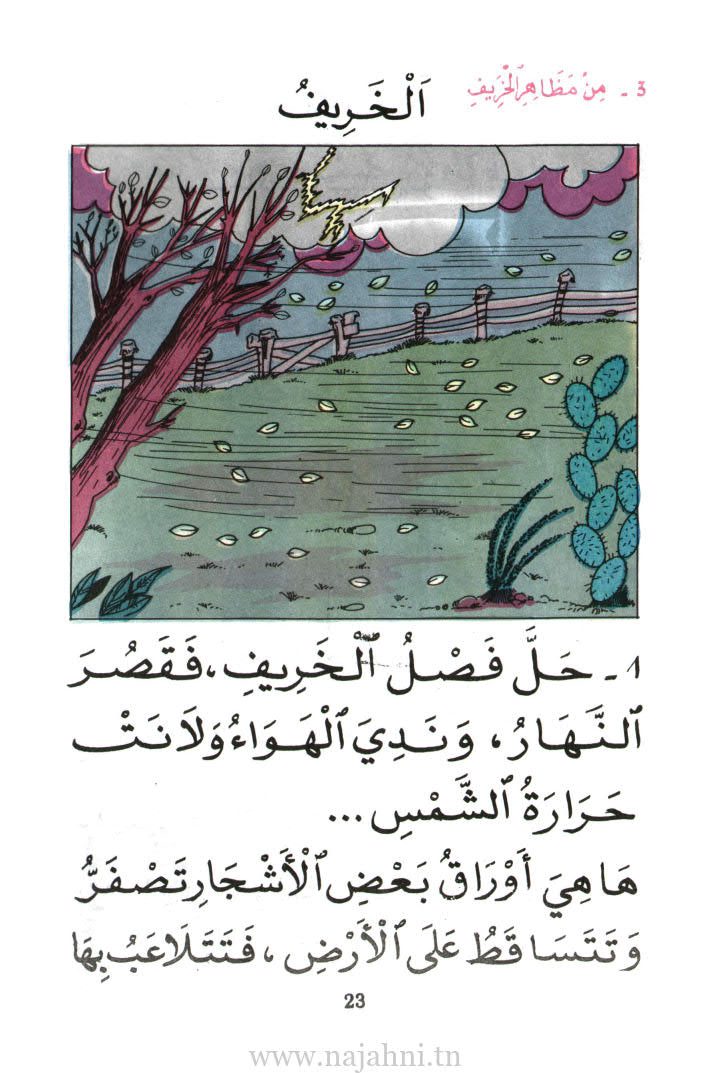 3 - مِنْ مَظَاهِرِ ٱلْخَرِيفِ
اَلْخَرِيفُ
1 - حَلَّ فَصْلُ ٱلْخَرِيفِ، فَقَصُرَ
ٱلنَّهَارُ، وَنَدِيَ ٱلْهَوَاءُ وَلَانَتْ
حَرَارَةُ ٱلشَّمْسِ ...
هَا هِيَ أَوْرَاقُ بَعْضِ ٱلْأَشْجَارِ تَصْفَرُّ
وَتَتَسَاقَطُ عَلَى ٱلْأَرْضِ، فَتَتَلَاعَبُ بِهَا
23
www.najahni.tn